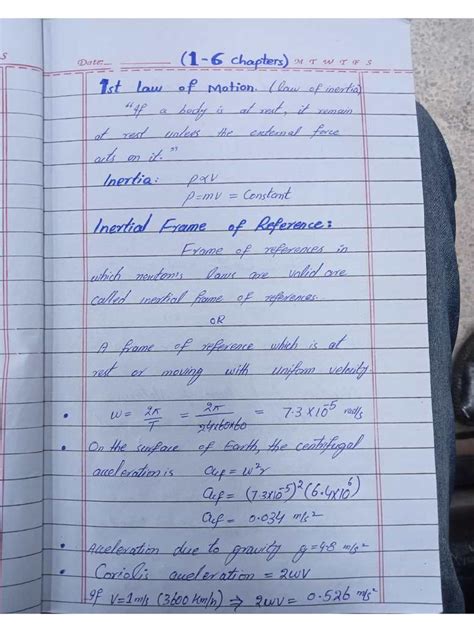 S
Date:
(1-6 chapters) M T W T F S
1st law of Motion. (law of inertia)
"If a body is at rest, it remain
at rest unless the external force
acts on it."
Inertia: P∝V
P=mv = Constant
Inertial Frame of Reference:
Frame of references in
which newton's laws are valid are
called inertial frame of references.
OR
A frame of reference which is at
rest or moving with uniform velocity
• ω = 2π/T = 2π/24x60x60 = 7.3 x 10⁻⁵ rad/s
• On the surface of Earth, the centrifugal
acceleration is acf = ω²r
acf = (7.3x10⁻⁵)² (6.4x10⁶)
acf = 0.034 m/s²
• Acceleration due to gravity g = 4.8 m/s²
• Coriolis acceleration = 2ωV
If V=1m/s (3600 Km/h) ⇒ 2ωV = 0.526 m/s²